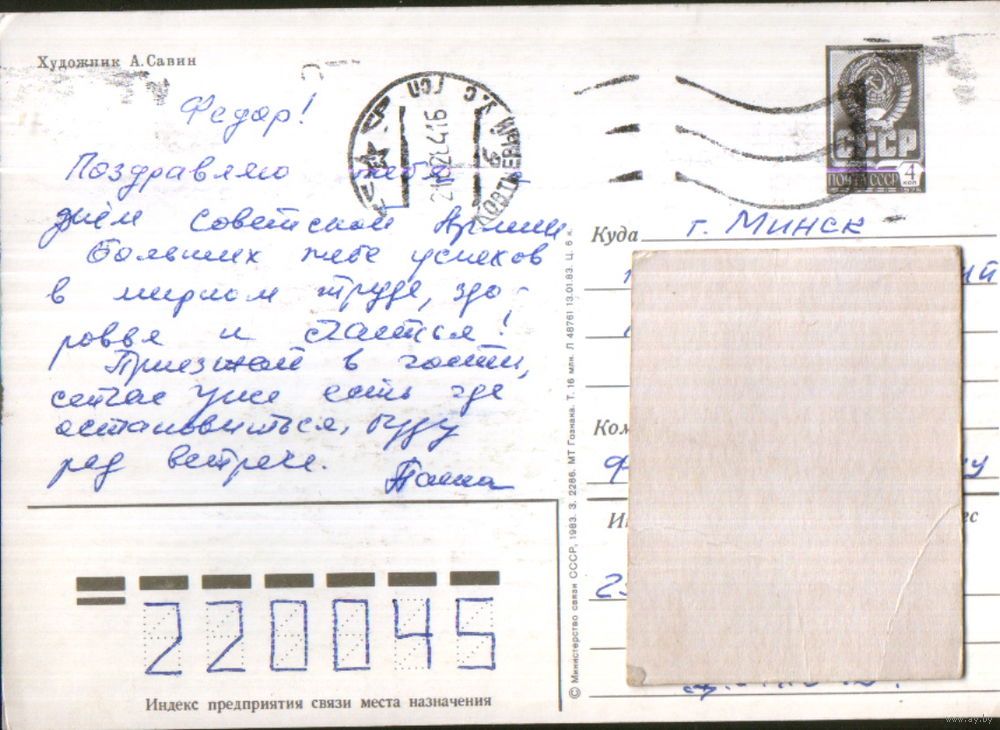 Художник А.Савин
Федор!
Поздравляю тебя
днём Советской Армии
Больших тебе успехов
в мирном труде, здо-
ровья и счастья!
Приезжай в гости,
сейчас уже есть где
остановиться, буду
рад встрече.
Паша
220045
Индекс предприятия связи места назначения
© Министерство связи СССР, 1983. З. 2286. МТ Гознака. Т. 16 млн. Л 48761 13.01.83. Ц. 6 к.
СССР
ПОЧТА СССР 4 коп
Куда г. Минск
ий
Ком
Ф
у
Ин
ес
www.ay.by